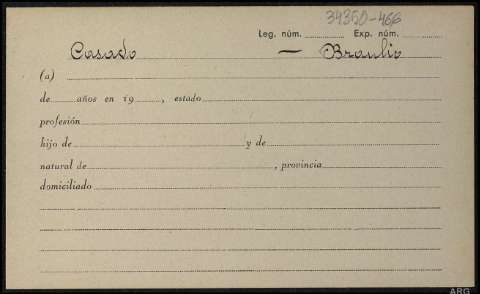 34350-466
Leg. núm. Exp. núm.
Casado — Braulio
(a)
de años en 19 , estado
profesión
hijo de y de
natural de , provincia
domiciliado
ARG